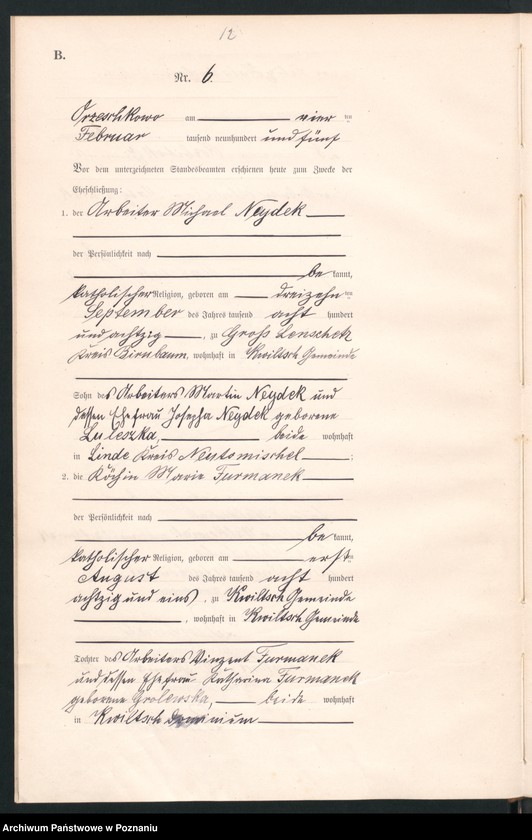 12
B.
Nr. 6.
Orzeschkowo am vier ten
Februar tausend neunhundert und fünf
Vor dem unterzeichneten Standesbeamten erschienen heute zum Zwecke der
Eheschließung:
1. der Arbeiter Michael Neydek
der Persönlichkeit nach
be kannt,
katholischer Religion, geboren am dreizehn ten
September des Jahres tausend acht hundert
und achtzig, zu Groß Lenschek
Kreis Birnbaum, wohnhaft in Kwiltsch Gemeinde
Sohn des Arbeiters Martin Neydek und
dessen Ehefrau Josepha Neydek geborene
Luleszka, beide wohnhaft
in Linde Kreis Neutomischel;
2. die Köchin Marie Furmanek
der Persönlichkeit nach
be kannt,
katholischer Religion, geboren am ersten
August des Jahres tausend acht hundert
achtzig und eins, zu Kwiltsch Gemeinde
, wohnhaft in Kwiltsch Gemeinde
Tochter des Arbeiters Vinzent Furmanek
und dessen Ehefrau Katharina Furmanek
geborene Grolewska, beide wohnhaft
in Kwiltsch Dominium
Archiwum Państwowe w Poznaniu